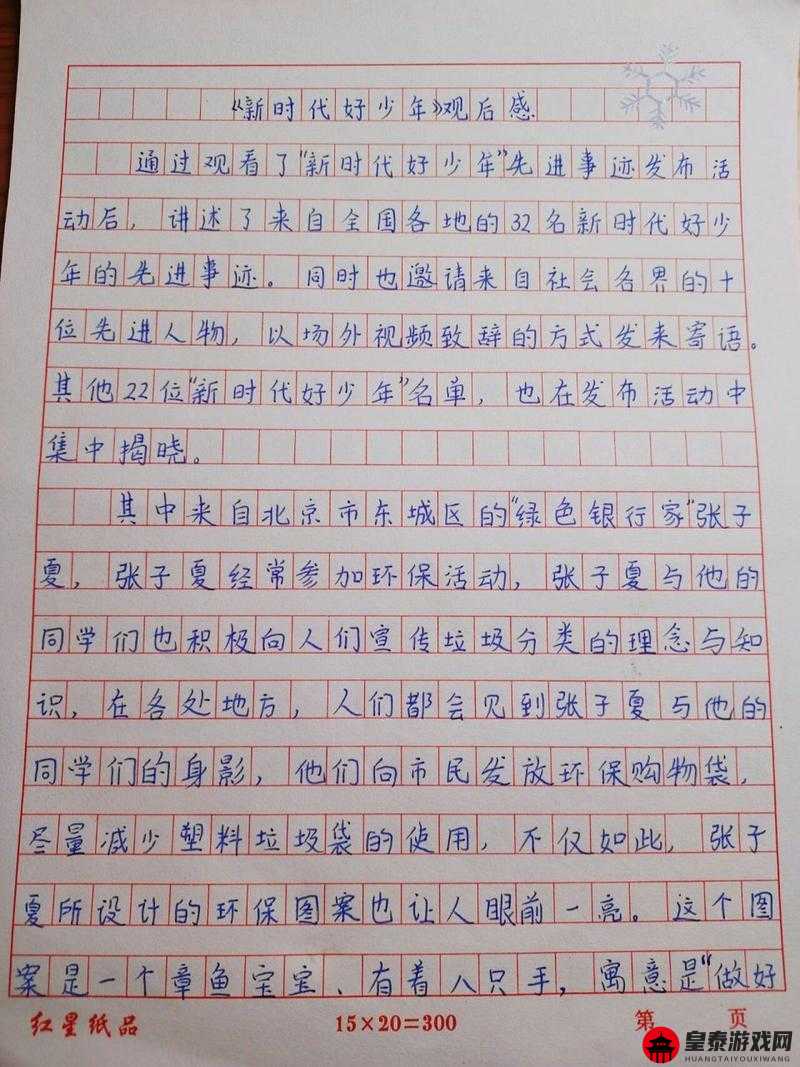 《新时代好少年》观后感
通过观看了"新时代好少年"先进事迹发布活
动后，讲述了来自全国各地的32名新时代好少
年的先进事迹。同时也邀请来自社会各界的十
位先进人物，以场外视频致辞的方式发来寄语。
其他22位"新时代好少年"名单，也在发布活动中
集中揭晓。
其中来自北京市东城区的"绿色银行家"张子
夏，张子夏经常参加环保活动，张子夏与他的
同学们也积极向人们宣传垃圾分类的理念与知
识，在各处地方，人们都会见到张子夏与他的
同学们的身影，他们向市民发放环保购物袋，
尽量减少塑料垃圾袋的使用，不仅如此，张子
夏所设计的环保图案也让人眼前一亮。这个图
案是一个章鱼宝宝、有着八只手，寓意是"做好
红星纸品 15×20=300 第 页
皇泰游戏网
HUANGTAIYOUXIWANG